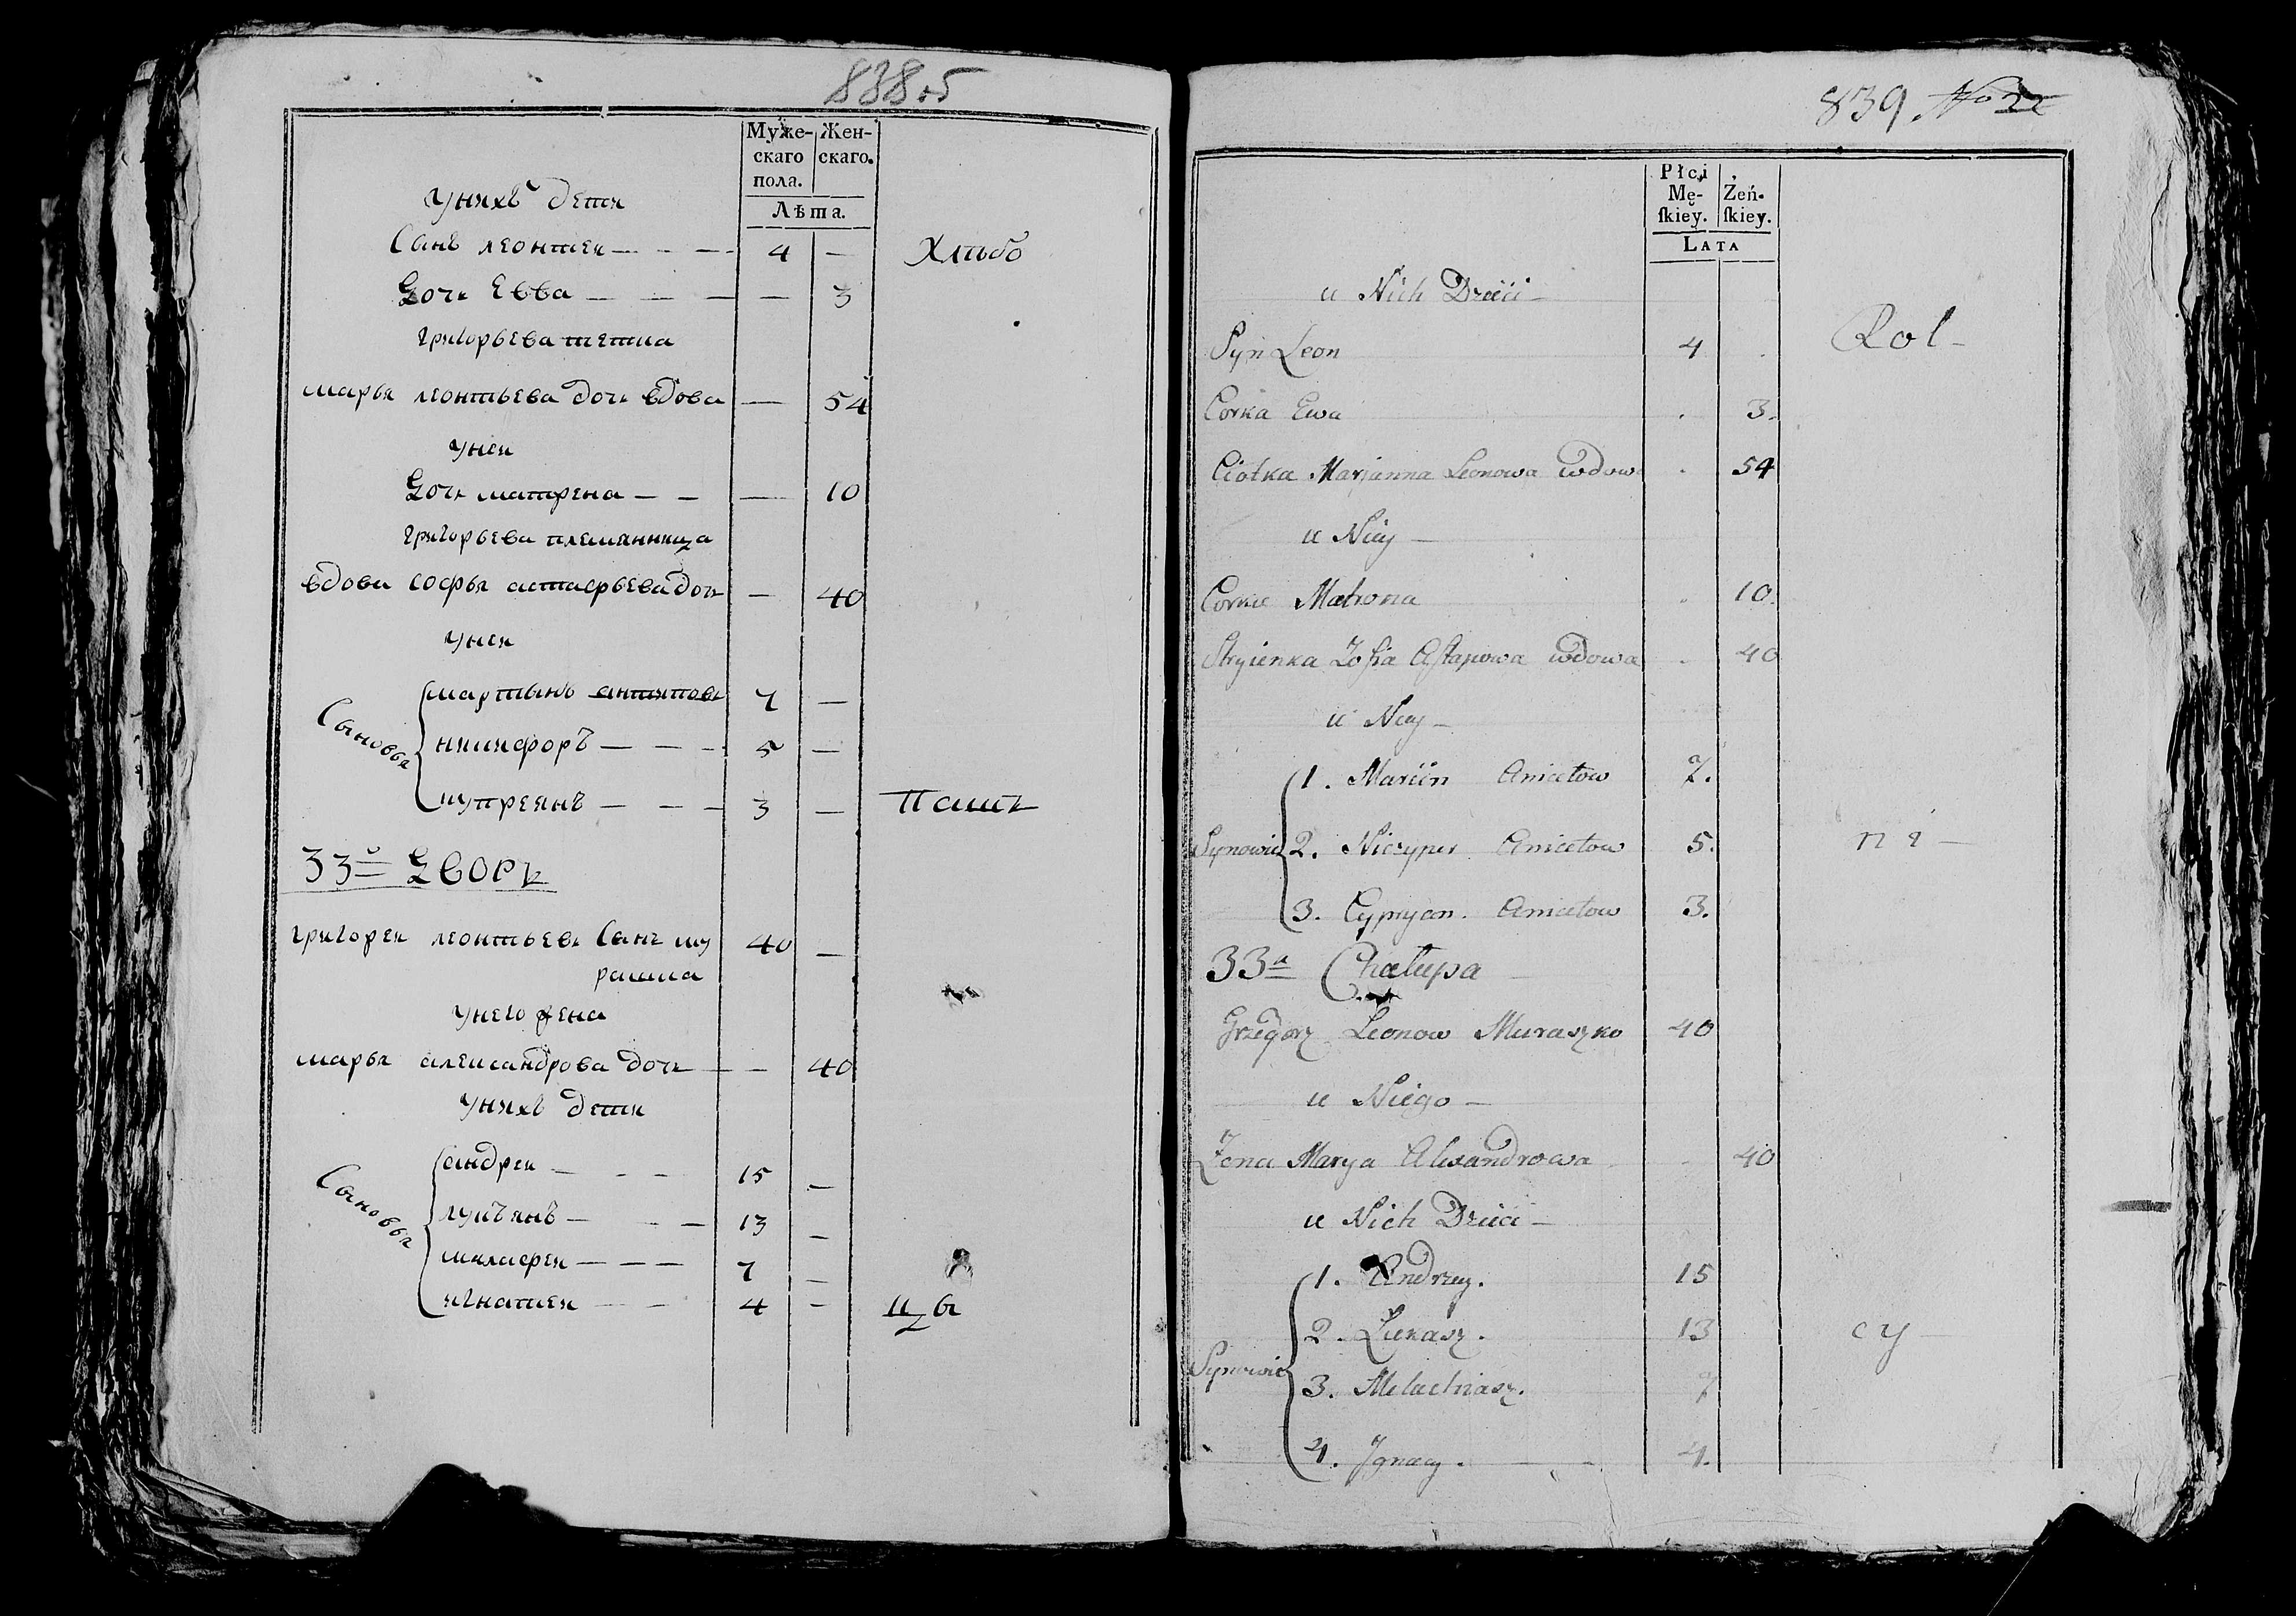 838.5
Муже- Жен-
скаго скаго.
пола.
Лѣта.
Унихъ дети
Сынъ леонтеи — — — 4 — Хлѣбо
Дочь Евва — — — — 3
григорьева тетка
марья леонтьева дочь вдова — 54
Унеи
Дочь матрена — — — 10
григорьева племянница
вдова софья астафьева дочь — 40
Унеи
Сыновья
мартынъ 7 —
никифоръ — — — 5 —
купреянъ — — — 3 — Пашъ
33й ДВОРЪ
григореи леонтьевъ Сынъ му 40 —
рашка
Унего жена
марья александрова дочь — — 40
Унихъ дети
Сыновья
андреи — — — 15 —
лукъянъ — — — 13 —
малафеи — — — 7 —
игнатеи — — 4 — цы
839. No 22
Płci
Mę- Żeń-
ſkiey. ſkiey.
LATA
u Nich Dzieci —
Syn Leon 4 . Rol —
Corka Ewa . 3.
Ciotka Marjanna Leonowa wdow . 54
u Niey —
Corka Matrona . 10.
Stryienka Zofia Astapowa wdowa . 40
u Niey —
Synowie
1. Marcin Anicetow 7.
2. Niczyper Anicetow 5. ni —
3. Cypryan. Anicetow 3.
33a Chałupa
Grzegorz Leonow Muraszko 40
u Niego —
Żona Marya Alexandrowa . 40
u Nich Dzieci —
Synowie
1. Andrzey. 15
2. Łukasz. 13 cy —
3. Melachiasz. 7
4. Ignacy. 4.